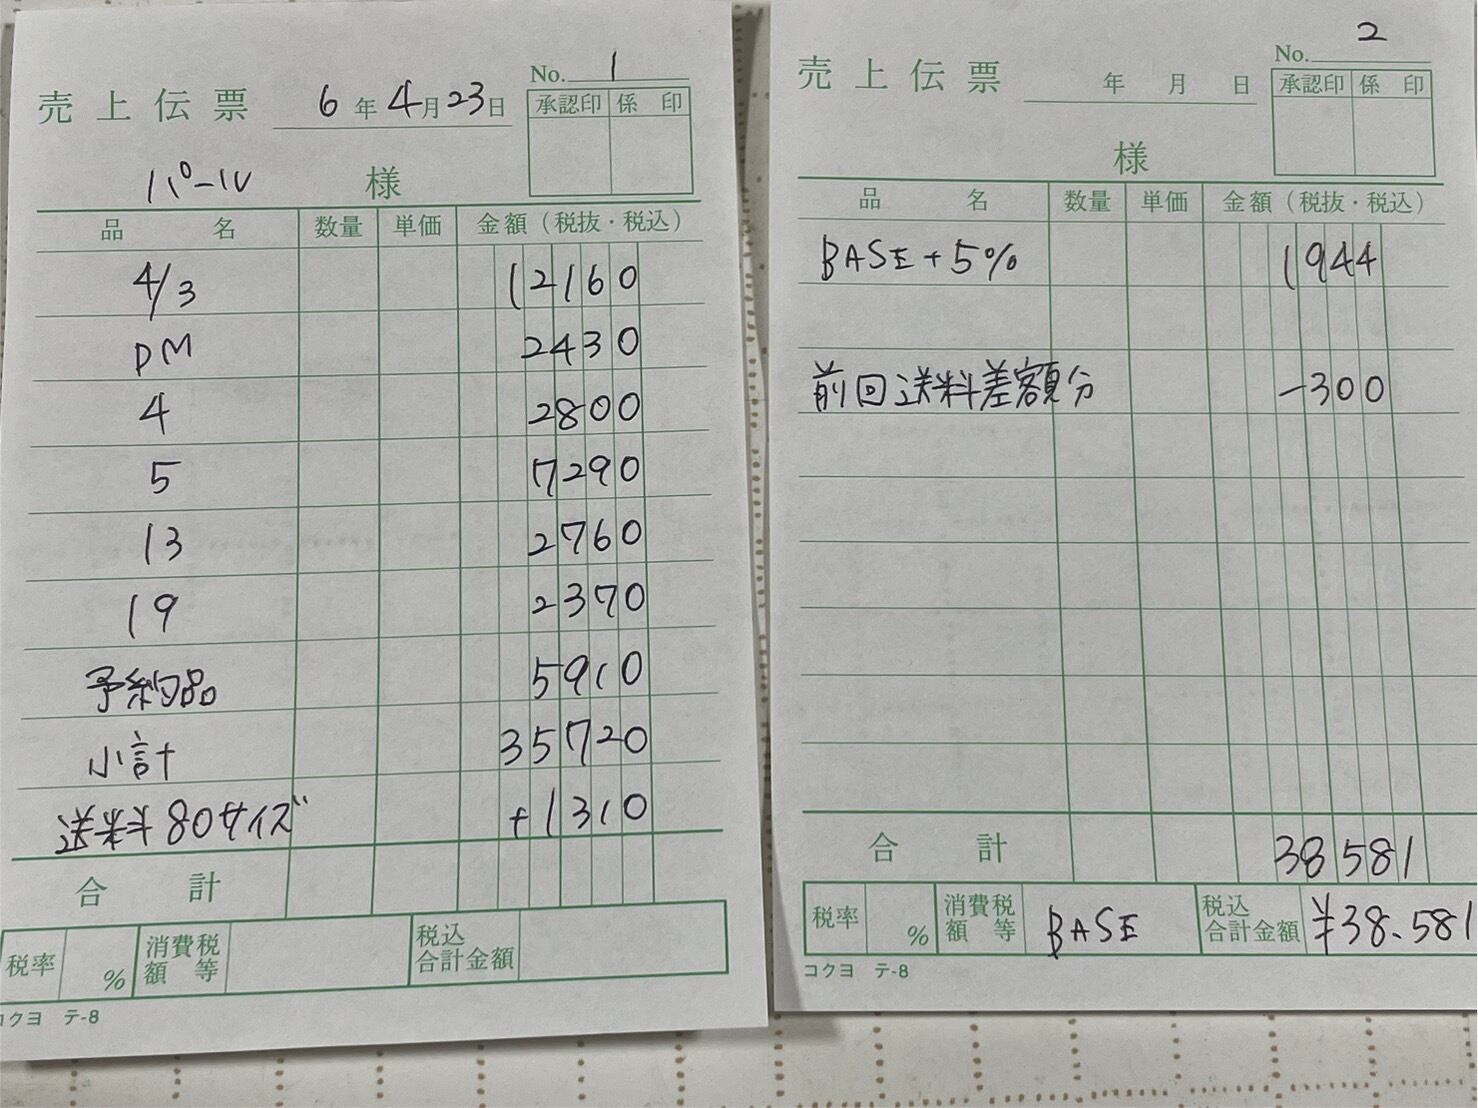 No. 1
売上伝票 6年4月23日
承認印 係印
パール 様
品名 数量 単価 金額(税抜・税込)
4/3 12160
DM 2430
4 2800
5 7290
13 2760
19 2370
予約品 5910
小計 35720
送料80サイズ +1310
合計
税率 % 消費税額等 税込合計金額
コクヨ テ-8
No. 2
売上伝票 年 月 日
承認印 係印
様
品名 数量 単価 金額(税抜・税込)
BASE+5% 1944
前回送料差額分 -300
合計 38581
税率 % 消費税額等 BASE 税込合計金額 ¥38.581
コクヨ テ-8